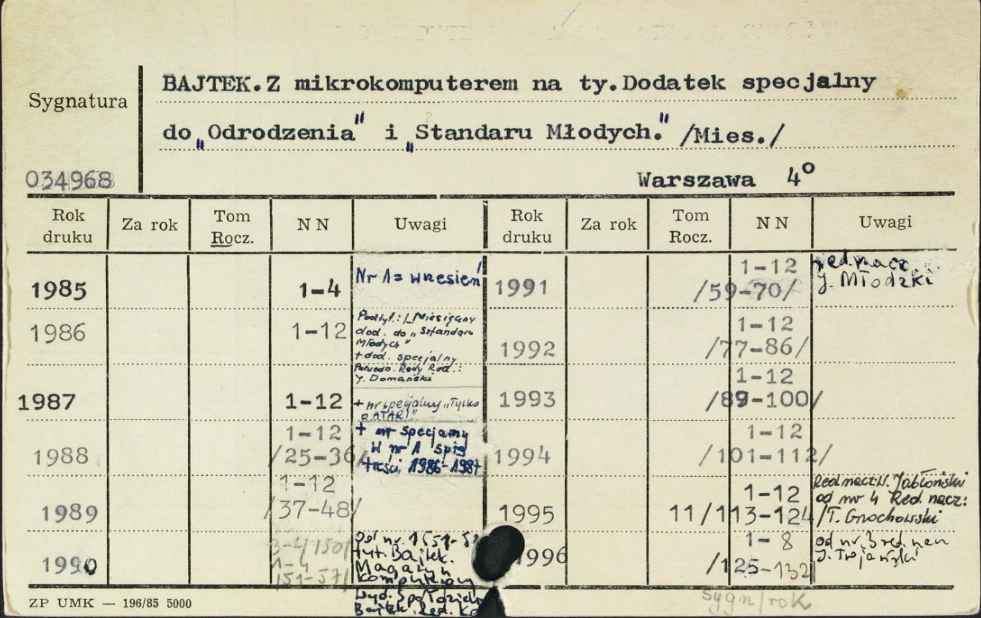 BAJTEK.Z mikrokomputerem na ty.Dodatek specjalny
Sygnatura
do „Odrodzenia" i „Standaru Młodych." /Mies./
034968
Warszawa 4°
Rok druku
Za rok
Tom Rocz.
N N
Uwagi
Rok druku
Za rok
Tom Rocz.
N N
Uwagi
1985 1-4 Nr 1 = wrzesień
1986 1-12 Podtyt.: Miesięczny
dod. do „Sztandaru
Młodych"
+ dod. specjalny
Rady Red.:
J. Domański
1987 1-12 + nr specjalny „Tylko
ATARI"
1988 1-12
/25-36/
+ nr specjalny
W nr 1 spis
treści 1986-1987
1989 1-12
/37-48/
1990 3-4/50/
1-4
/51-57/
Od nr
tyt. Bajtek.
Magazyn
Komputerowy
Wyd. Spółdzielnia
Bajtek. Red.
1991 1-12
/59-70/
red. nacz.
J. Młodzki
1992 1-12
/77-86/
1993 1-12
/89-100/
1994 1-12
/101-112/
1995 1-12
11/113-124/
Red. nacz. W. Jabłoński
od nr 4 Red. nacz:
T. Grochowski
1996 1-8
/125-132/
od nr 3 red. nacz
J. Trojański
ZP UMK — 196/85 5000
sygn/rok